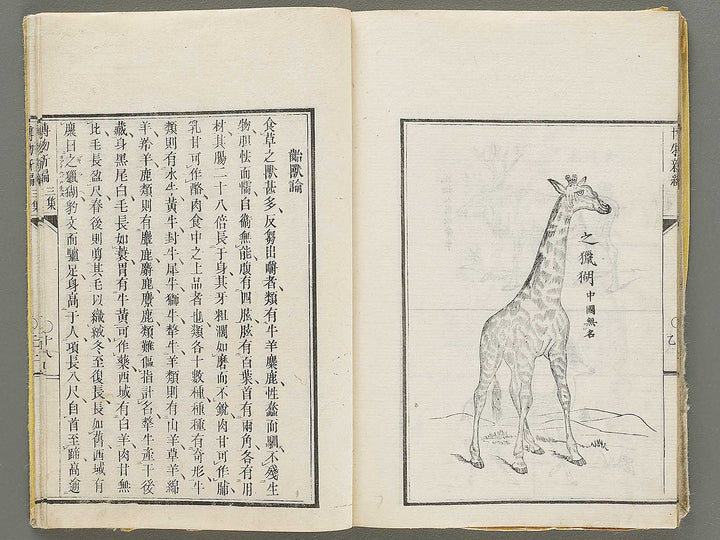 博物新編
之獵猢
中國無名
齝獸論
食草之獸甚多反芻出嚼者類有牛羊麋鹿性蠢而馴不殘生
物胆怯而懦自衛無能腹有四胘胘有百葉首有兩角各有用
材其腸二十八倍長于身其牙粗濶如磨而不銳肉甘可作脯
乳甘可作酪肉食中之上品者也類各十數種種有奇形牛
類則有水牛黃牛封牛犀牛獅牛犛牛羊類則有山羊草羊綿
羊羚羊鹿類則有麖鹿麝鹿麋鹿類難傴指計名犛牛產于後
藏身黑尾白毛長如簑胃有牛黃可作藥西域有白羊肉甘無
比毛長盈尺春後則剪其毛以織絨冬至復長長如舊西域有
麋曰之獵猢豹文而驢足身高于人項長八尺自首至蹄高逾
博物新編 三集